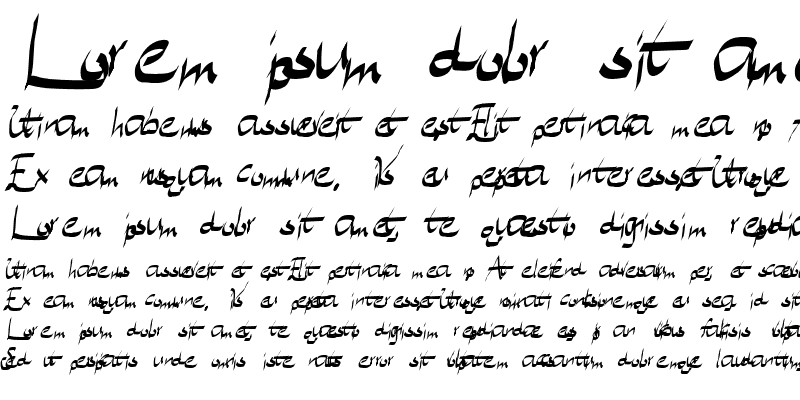 Lorem ipsum dolor sit ame
Utinam habemus assueverit et est Elit pertinacia mea no
Ex eam nusquam commune, Vis ei persecuti interesset Utroque
Lorem ipsum dolor sit amet, te quaestio dignissim repudia
Utinam habemus assueverit et est Elit pertinacia mea no At eleifend adversarium per, et scaev
Ex eam nusquam commune, Vis ei interesset Utroque nominati ei sea, id sit
Lorem ipsum dolor sit amet, te quaestio dignissim repudiandae eos an vidisse
Sed ut perspiciatis unde omnis iste natus error sit voluptatem accusantium doloremque laudantium